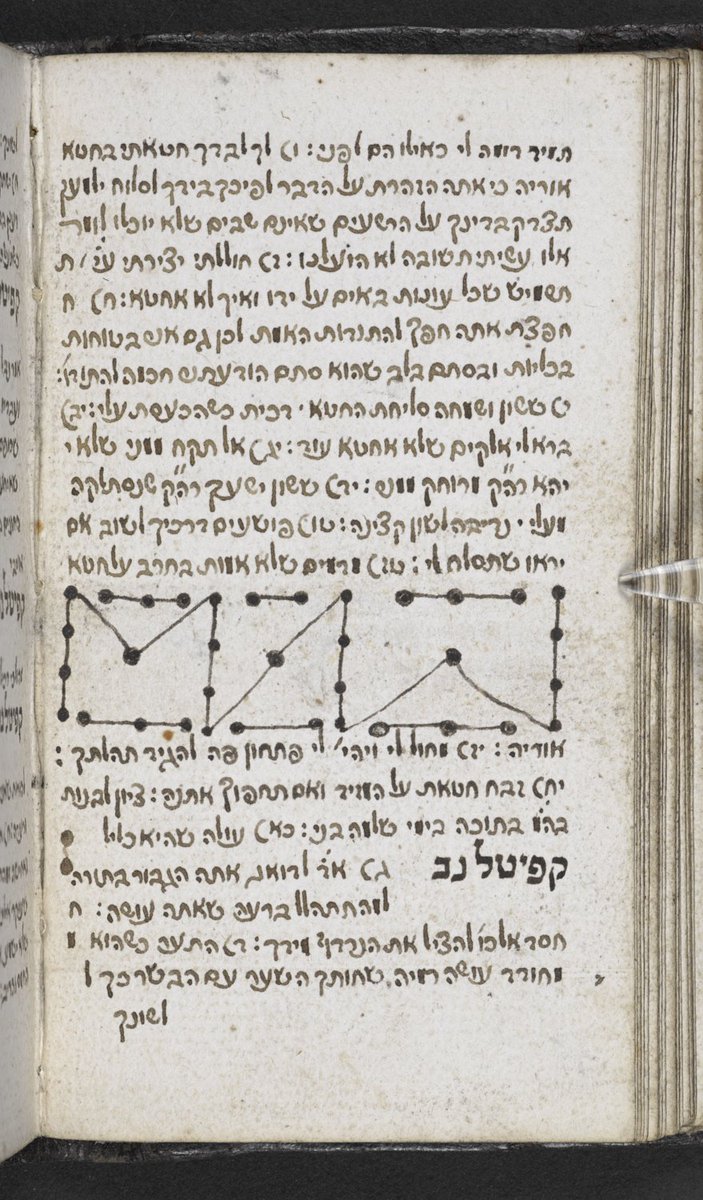 תמיד דומה לי כאילו הם לפני: ו) לך לבדך חטאתי בחטא
אוריה כי אתה הזהרת על הדבר לפיכך בידך לסלוח
תצדק בדינך על הרשעים שאינם שבים שלא יוכלו לומר
אלו עשיתי תשובה לא הועלנו: ז) חוללתי יצירתי
תשמיש שכל עונות באים על ידו ואיך לא אחטא: ח) ח
חפצת אתה חפץ להתודות האמת לכן גם אנש בטוחות
בכליות ובסתם בלב שהוא סתם הודעתנו חכמה להתודו׳:
ט) ששון ושמחה סליחת החטא דכית כשהכעסת עלי: יב)
בראלי אלקים שלא אחטא עוד: יג) אל תקח ממני שלא י
יהא רה״ק מרוחק ממנו: יד) ששון ישעך רה״ק שנסתלקה
מעלי נדיבה לשון קצינה: טו) פושעים דרכיך לשוב אם
יראו שתסלח לי: טז) מדמים שלא אמות בחרב על חטא
אוריה: יז) מחול לי ויהי׳ לי פתחון פה להגיד תהלתך:
יח) זבח חטאת על המזיד ואם תחפוץ אתנה: ציון לבנות
בהמ״ק בתוכה בימי שלמה בני: כא) עולה שהיא כליל
קפיטל נב ג) א״ל לדואג אתה הגבור בתורה
למה תתהלל ברעה שאתה עושה: ח
חסד אל כו׳ להציל את הנרדף מידך: ד) התער כשהוא מ
מחודד עושה רמיה, שחותך השער עם הבשר כך ל
לשונך